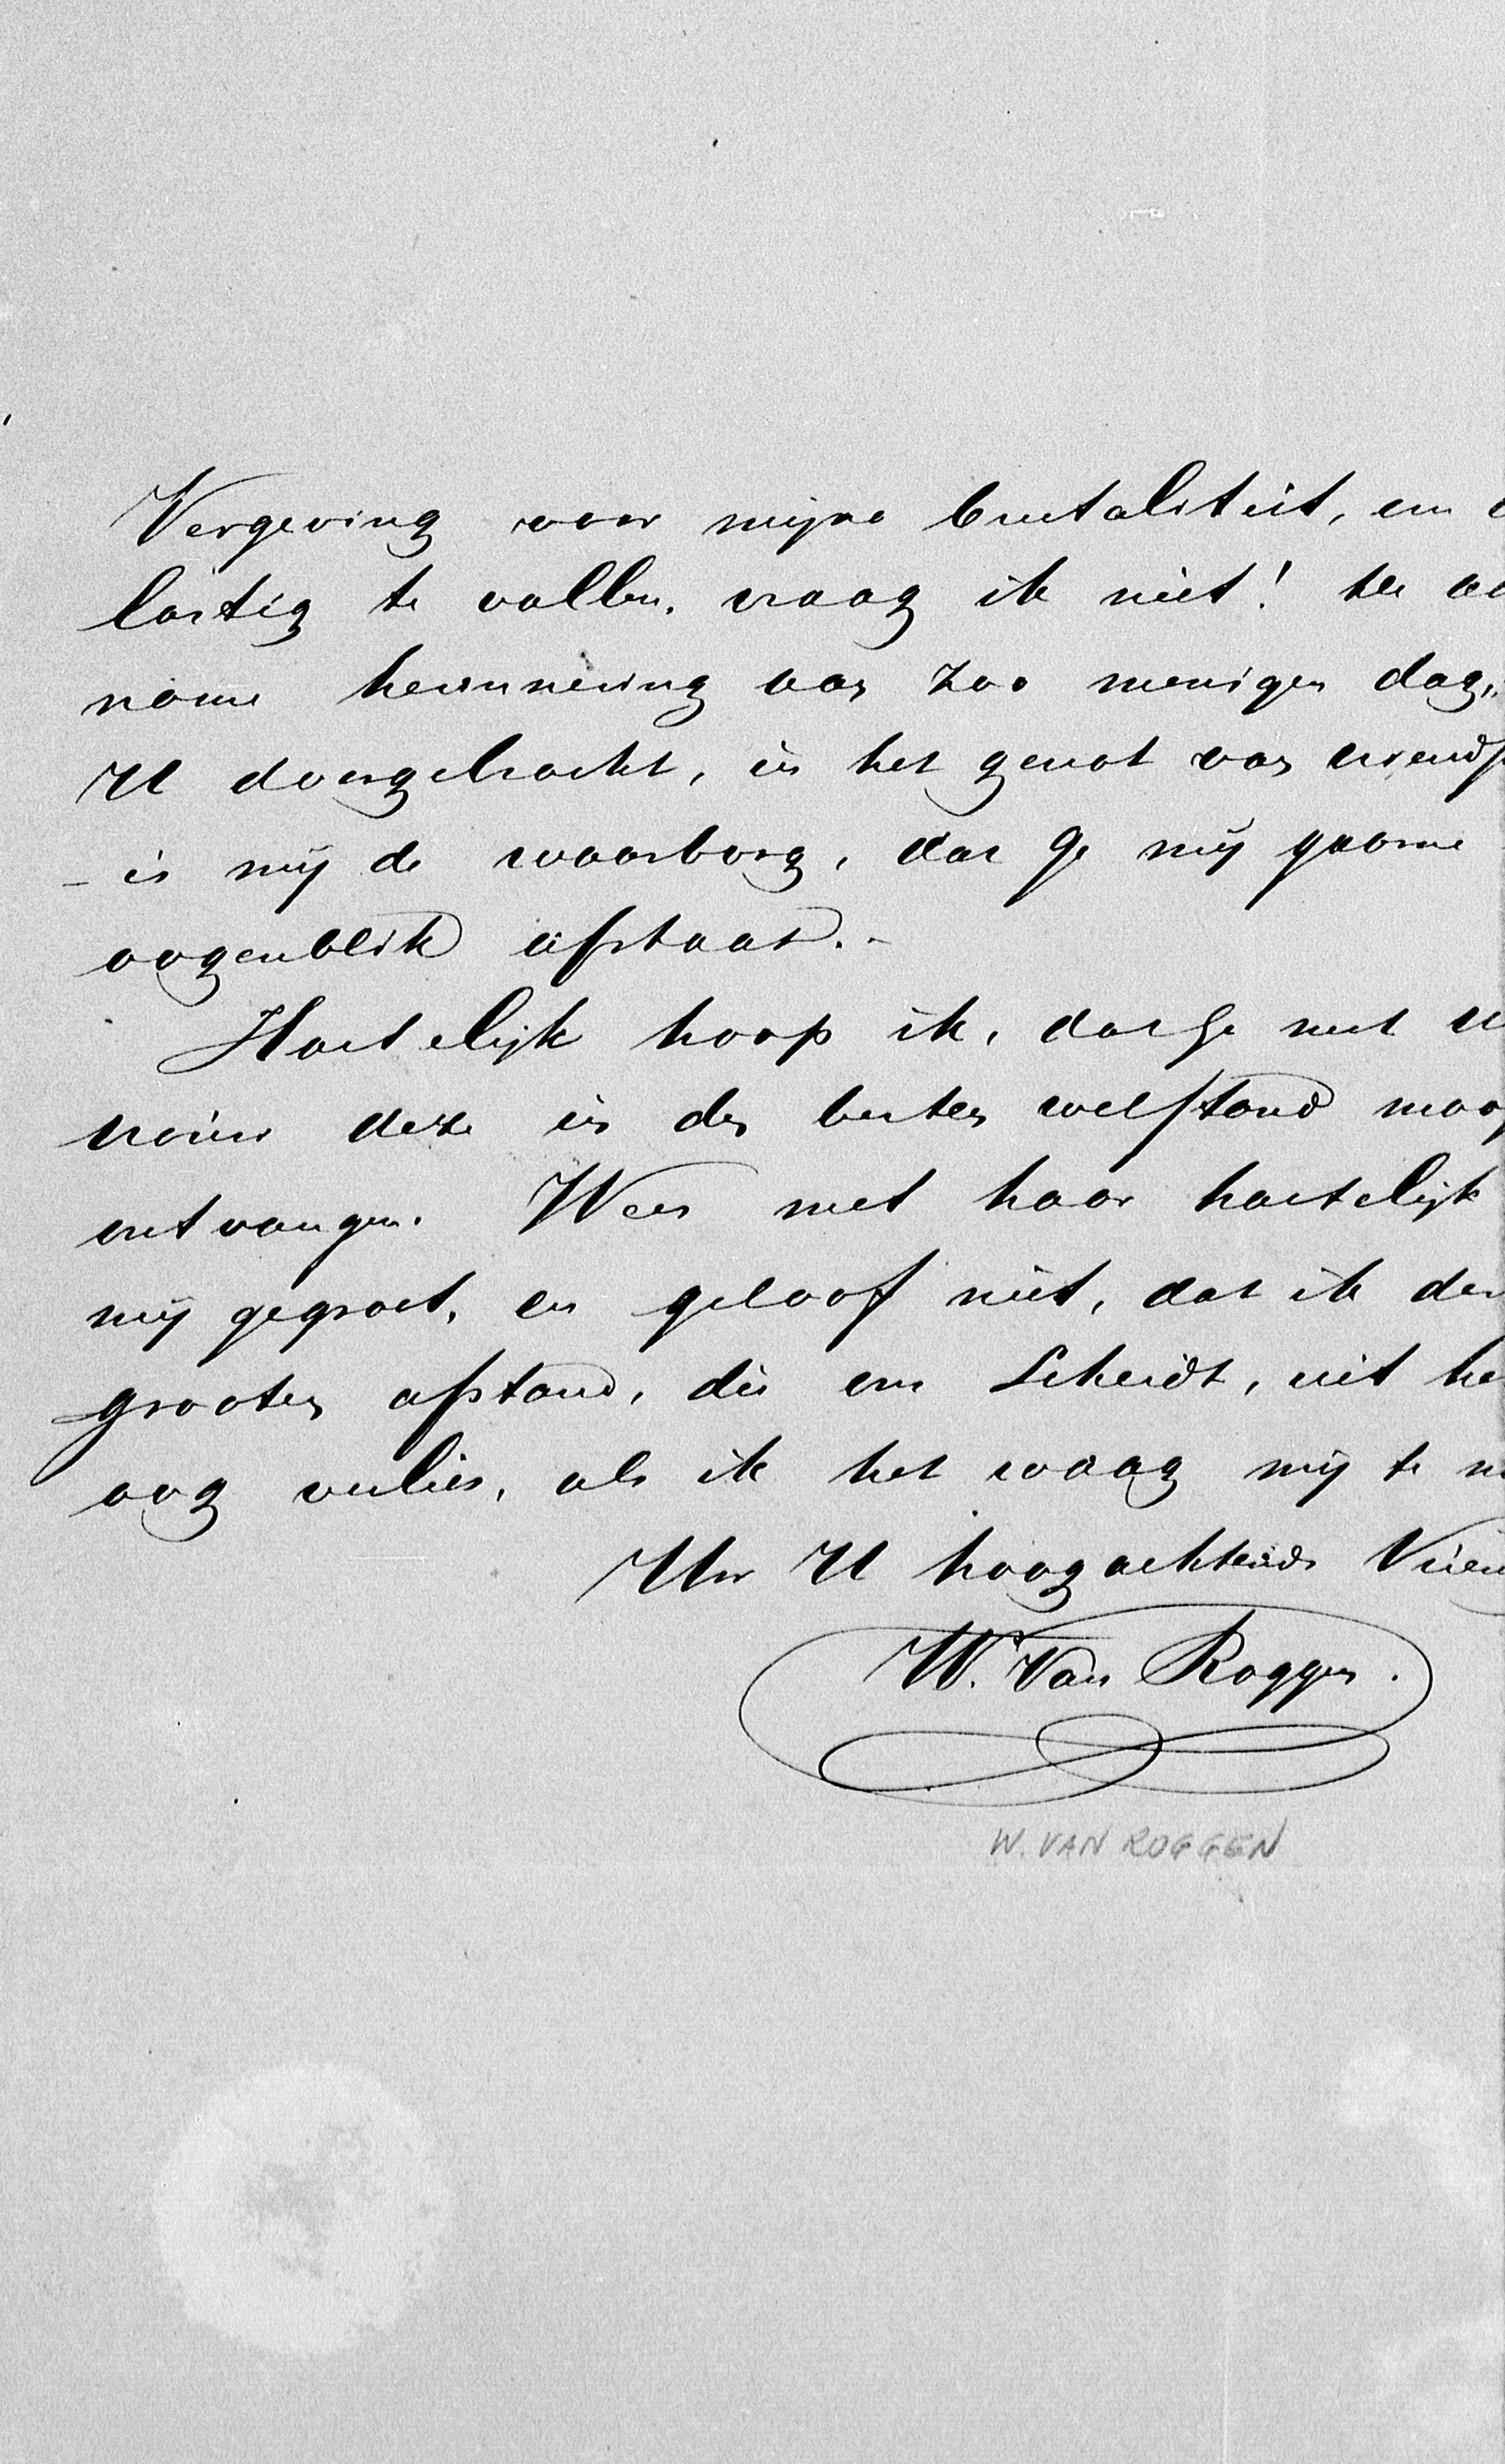 Vergeving voor mijne brutaliteit, om
lastig te vallen, vraag ik niet! de aa
name herinnering van zoo menigen dag,
U doorgebracht, in het genot van vriends
- is mij de waarborg, dat ge mij gaarne
oogenblik afstaat.-
Hartelijk hoop ik, dat ge met U
vrouw deze in den besten welstand moo
ontvangen. Wees met haar hartelijk
mij gegroet, en geloof niet, dat ik den
grooten afstand, die ons Scheidt, uit he
oog verlies, als ik het waag mij te n
Uw U hoogachtende Vrien
W. Van Roggen.
W. VAN ROGGEN